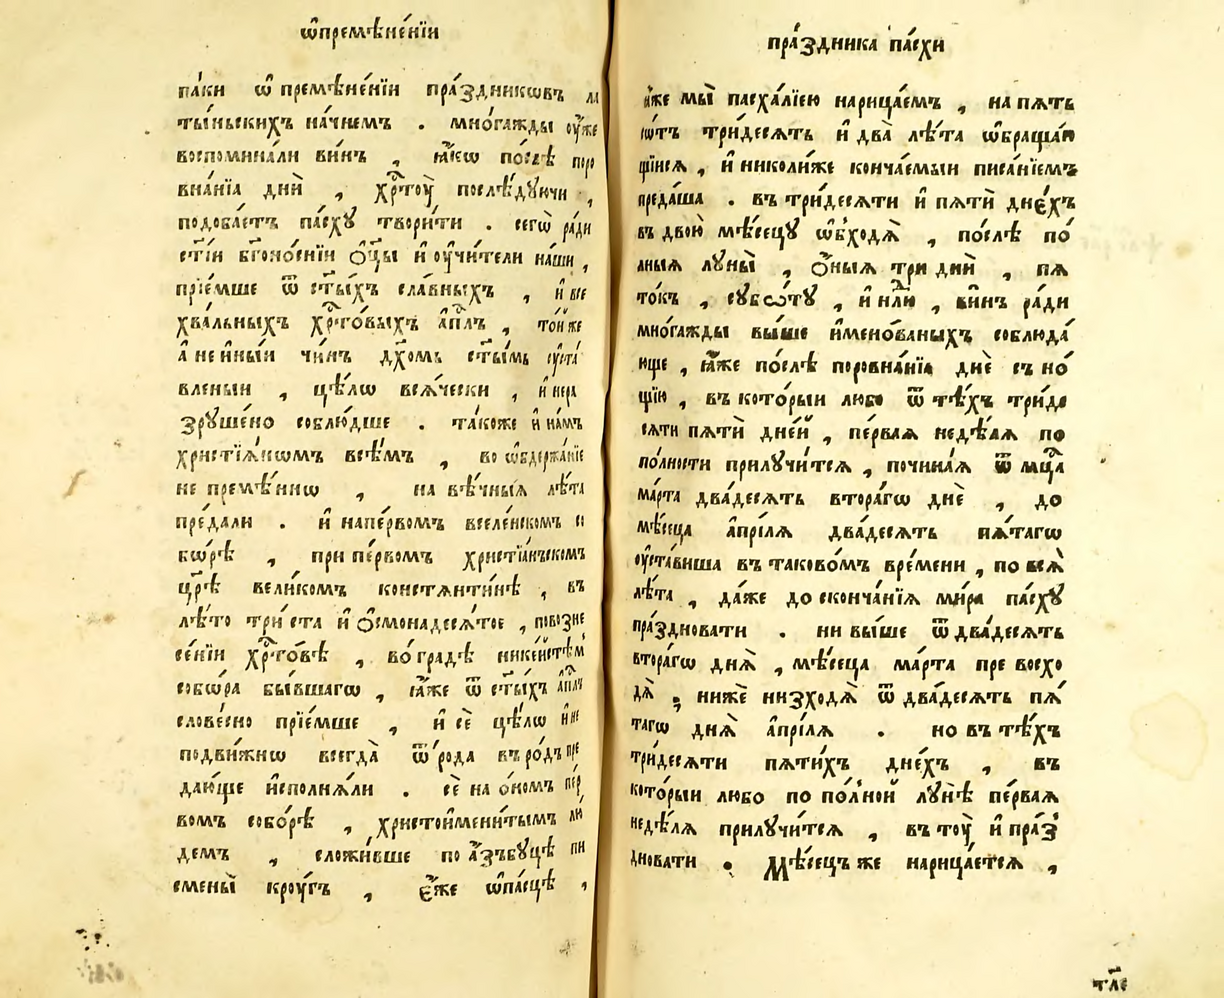 ѡ҆премѣне́нїи
па́ки ѡ҆ премѣне́нїи пра́здникѡвъ ла
ты́ньскихъ на́чнемъ . мно́гажды ᲂу҆́же
воспомина́ли ви́нъ , ꙗ҆́кѡ по́слѣ поро
вна́нїа днѝ , хр҃тоу̀ послѣ́дуючи ,
подоба́етъ па́сху твори́ти . сегѡ̀ ра́ди
ст҃і́и бг҃оно́снїи ѻ҆ц҃ы и҆ ᲂу҆чи́тели на́ши ,
прїе́мше ѿ ст҃ы́хъ сла́вныхъ , и҆ все
хва́льныхъ хр҃то́выхъ а҆п҃лъ , то́и же
а҆ не и҆́ныи чи́нъ дх҃омь ст҃ы́мь ᲂу҆ста́
вленыи , цѣ́лѡ вся́чески , и҆ нера
зруше́но соблю́дше . та́коже и҆ на́мъ
христїѧ́нѡмъ всѣ́мъ , во ѡ҆бдержа́нїе
не премѣ́ннѡ , на вѣ́чныѧ лѣ́та
пре́дали . и҆ напе́рвомъ вселе́нскомъ со
бѡ́рѣ , при пе́рвомъ христїа́нъскомъ
цр҃ѣ вели́комъ константи́нѣ , въ
лѣ́то три́ ста и҆ ѻ҆смонадесѧ́тое , повозне
се́нїи хр҃то́вѣ , во́ градѣ нике́йстѣмъ
собѡ́ра бы́вшагѡ , ꙗ҆́же ѿ ст҃ы́хъ а҆п҃лъ
слове́сно прїе́мше , и҆ сѐ цѣ́лѡ и҆ не
подви́жнѡ всегда̀ ѿ ро́да въ ро́дъ пре
даю́ще и҆сполнѧ́ли . сѐ на о́номъ пе́р
вомъ собо́рѣ , христои҆мени́тымъ лю
демъ , сложи́вше по а҆́зъбуцѣ пи
смены̀ кроу́гъ , є҆́же ѡ҆ па́сцѣ ,
пра́здника па́схи
ꙗ҆́же мы̀ пасха́лїею нарица́емъ , на пѧ́ть
со́тъ три́десѧть и҆ два̀ лѣ́та ѡ҆браща́ю
щїисѧ , и҆ николи́же конча́емыи писа́нїемъ
преда́ша . въ три́десѧти и҆ пѧти̑ дне́хъ
въ двою̀ мѣ́сецу ѡ҆бходѧ̀ , по́слѣ по́
лныѧ луны̀ , ѻ҆́ныѧ три днѝ , пѧ
то́къ , суббѡ́ту , и҆ нд҃лю , ви́нъ ра́ди
мно́гажды вы́ше и҆менова́ныхъ соблюда́
юще , ꙗ҆́же по́слѣ поровна́нїа днѐ съ но́
щїю , въ кото́рыи любо ѿ тѣ́хъ три́де
сѧти пѧтѝ дне́й , пе́рваѧ недѣ́лѧ по
по́лности прилучи́тсѧ , почина́ѧ ѿ мц҃а
ма́рта два́десѧть втора́гѡ днѐ , до
мѣ́сеца а҆прі́лѧ два́десѧть пѧ́тагѡ
ᲂу҆ста́виша въ таково́мъ вре́мени , по всѧ̀
лѣ́та , да́же до сконча́нїѧ ми́ра па́сху
пра́здновати . ни вы́ше ѿ два́десѧть
втора́гѡ днѧ̀ , мѣ́сеца ма́рта пре восхо
дѧ̀ , ни́жѐ низходѧ̀ ѿ два́десѧть пѧ́
тагѡ днѧ̀ а҆прі́лѧ . но въ тѣ́хъ
три́десѧти пѧти́хъ дне́хъ , въ
кото́рыи любо по по́лной лу́нѣ пе́рваѧ
недѣ́лѧ прилучи́тсѧ , въ тоу̀ и҆ пра́з
дновати . Мѣ́сецъ же нарица́етсѧ ,
тл҃е